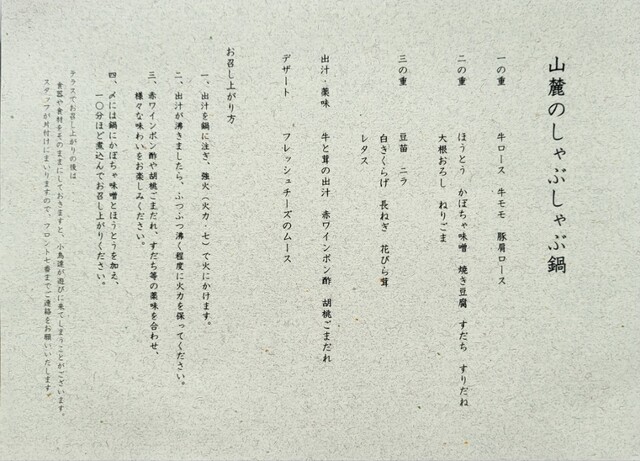 山麓のしゃぶしゃぶ鍋
一の重 牛ロース 牛モモ 豚肩ロース
二の重 ほうとう かぼちゃ味噌 焼き豆腐 すだち すりだね
大根おろし ねりごま
三の重 豆苗 ニラ
白きくらげ 長ねぎ 花びら茸
レタス
出汁・薬味 牛と茸の出汁 赤ワインポン酢 胡桃ごまだれ
デザート フレッシュチーズのムース
お召し上がり方
一、出汁を鍋に注ぎ、強火（火力・七）で火にかけます。
二、出汁が沸きましたら、ふつふつ沸く程度に火力を保ってください。
三、赤ワインポン酢や胡桃ごまだれ、すだち等の薬味を合わせ、
様々な味わいをお楽しみください。
四、〆には鍋にかぼちゃ味噌とほうとうを加え、
一〇分ほど煮込んでお召し上がりください。
テラスでお召し上がりの後は
食器や食材をそのままにしておきますと、小鳥達が遊びに来てしまうことがございます。
スタッフが片付けにまいりますので、フロント七番までご連絡をお願いいたします。